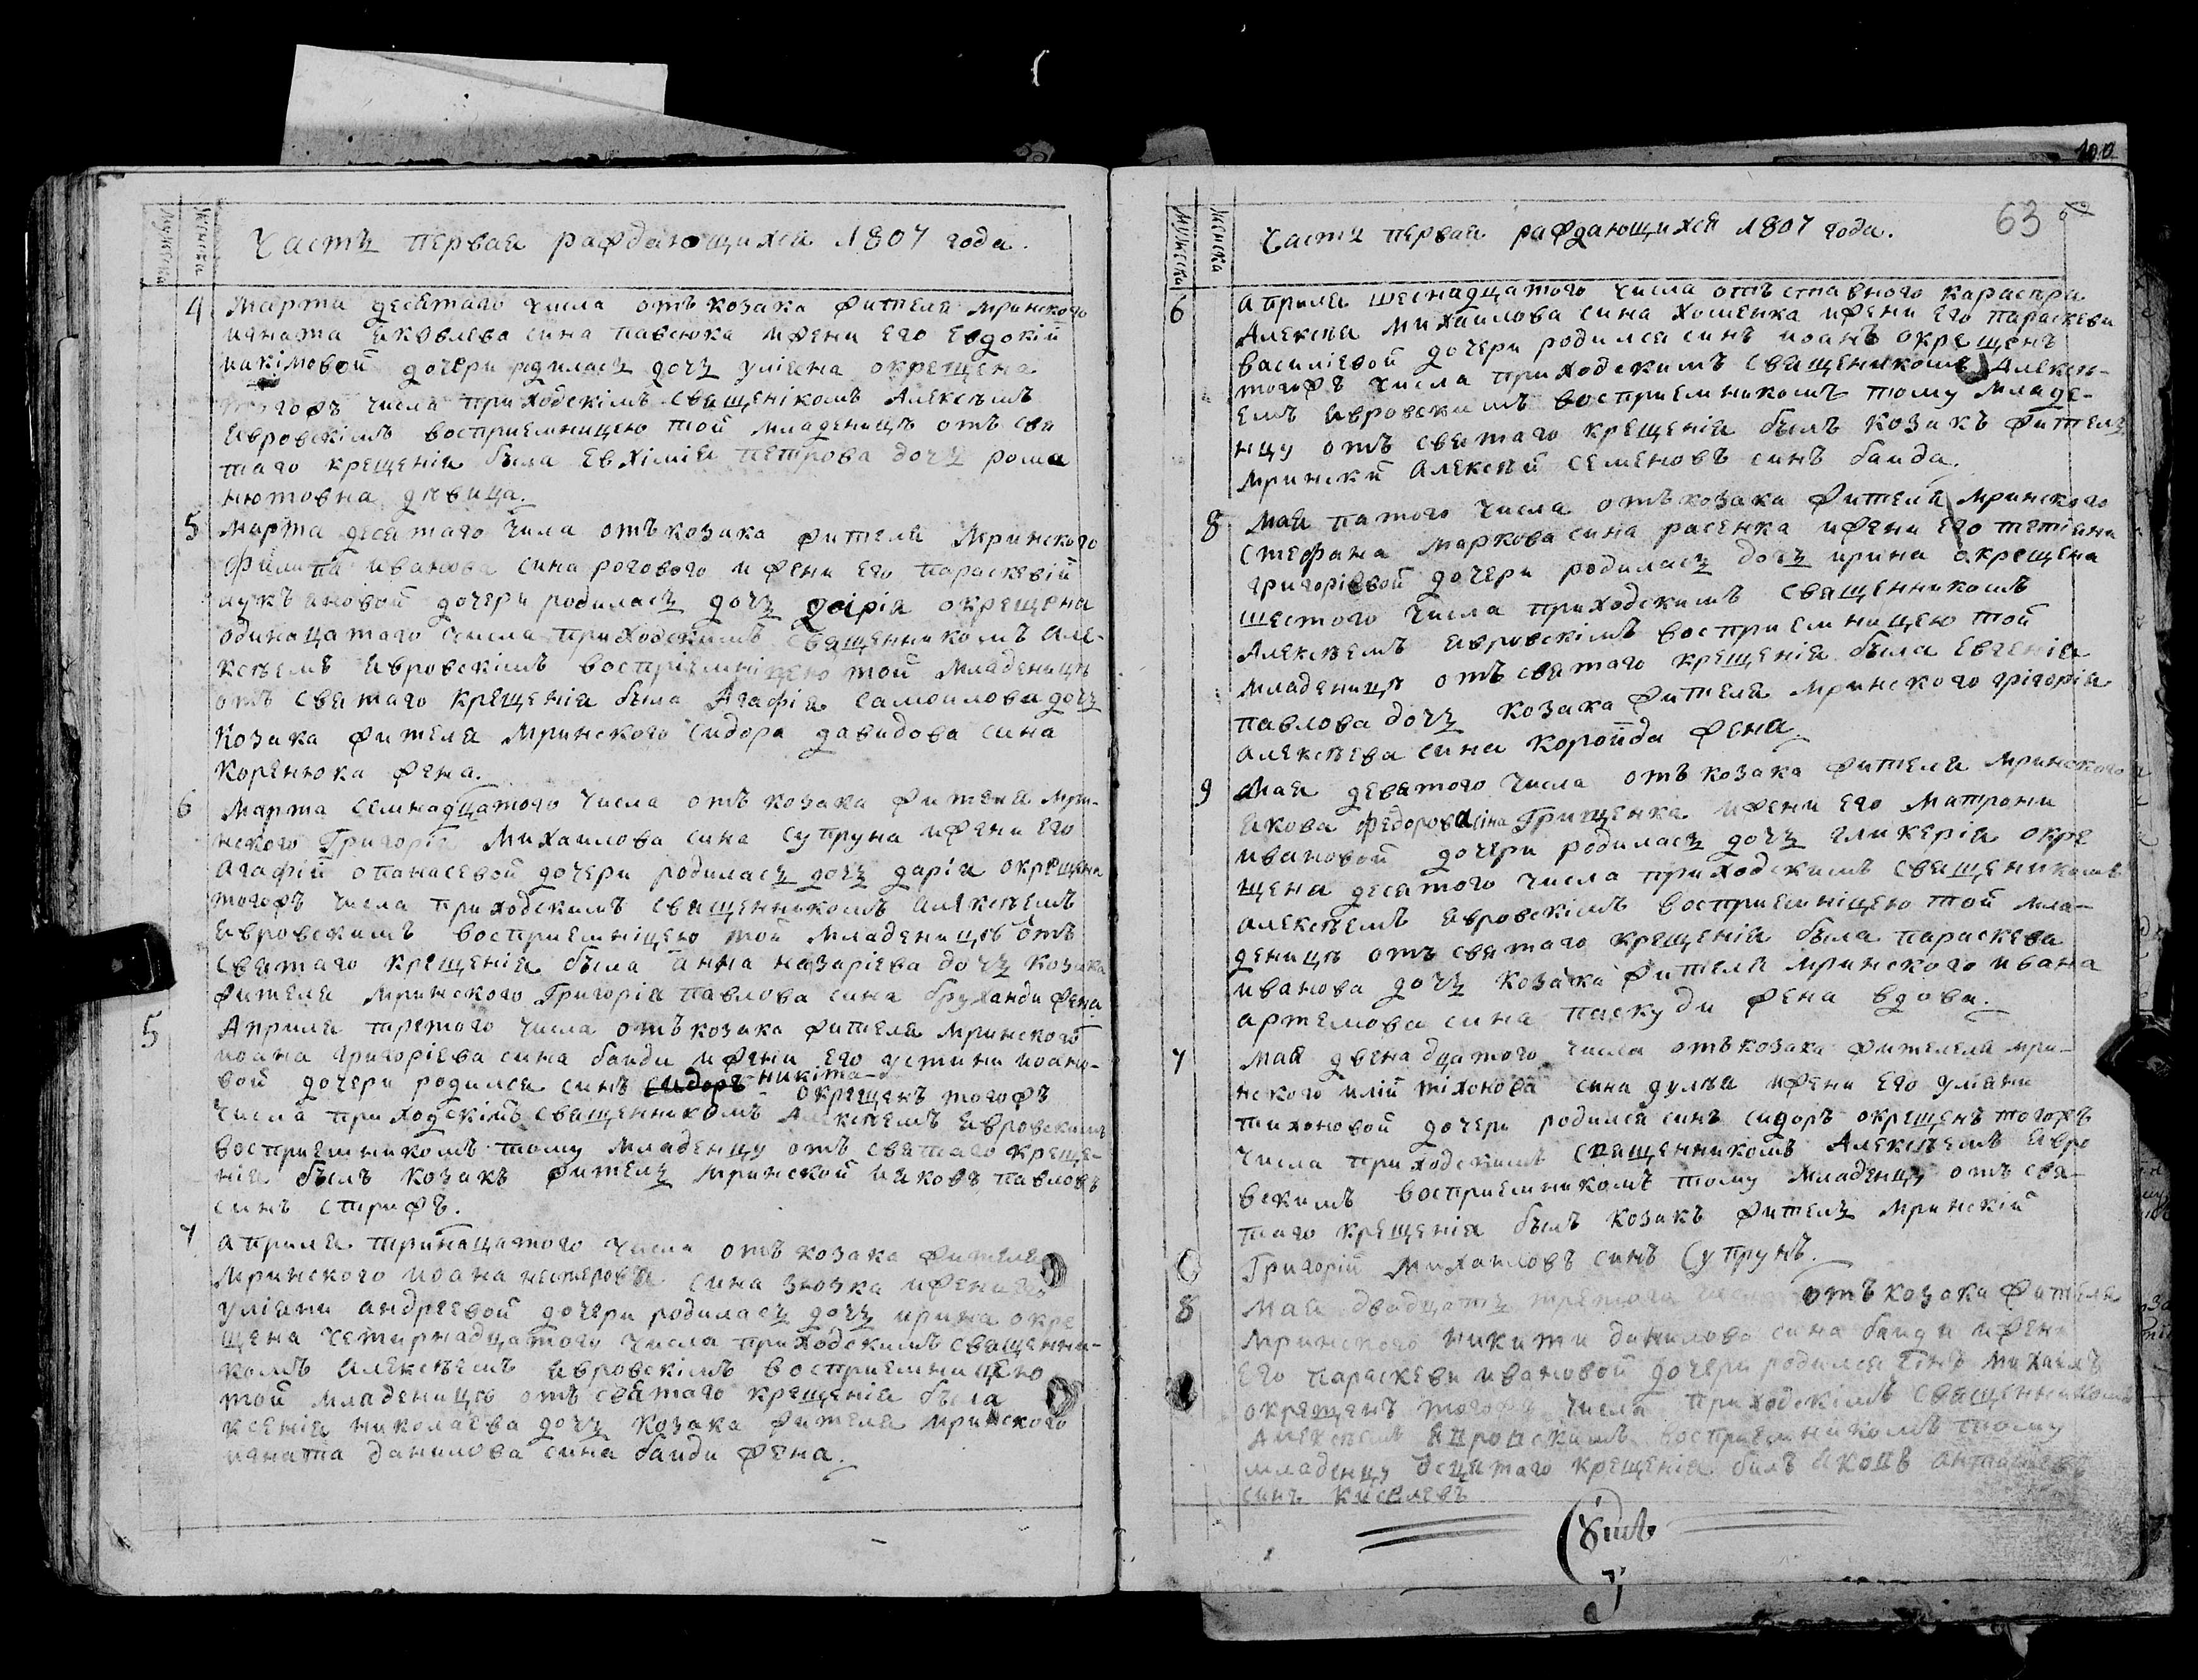 мужеска
женска
Часть первая раждающихся 1807 года.
4 Марта десятаго числа отъ козака жителя мринского
игната яковлева сина павсюка ижени его Евдокій
якімовой дочери родилась дочь уліяна окрещена
тогожъ числа приходскімъ священікомъ Алексѣемъ
Явровскімъ восприемницею той младеницѣ отъ свя
таго крещенія была Евхімія петрова дочь рома
нютовна дѣвица.
5 Марта десятаго чила отъ козака жителя Мринского
Филипа иванова сина рогового ижени его параскевій
лукъяновой дочери родилась дочь дарія окрещена
одинацатого числа приходскимъ священникомъ але-
ксѣемъ явровскімъ воспріемніцею той младеницѣ
отъ святаго крещенія была Агафія самоилова дочь
Козака жителя Мринского Сидора давидова сина
Коренюка жена.
6 Марта семнадцатого числа отъ козака жителя мри-
нского Григорія Михаилова сина супруна ижени его
агафій опанасевой дочери родилась дочь дарія окрещена
тогожъ числа приходскимъ священникомъ алексѣемъ
Явровскимъ восприемніцею той младеницѣ отъ
святаго крещенія была анна назаріева дочь козака
жителя мринского Григорія павлова сина бруханди жена
5 Априля третого числа отъ козака жителя мринского
иоана григоріева сина банди ижени его устини иоано-
вой дочери родился синъ сидоръ никіта окрещенъ тогожъ
числа приходскімъ священникомъ Алексѣемъ явровскимъ
восприемникомъ тому младенцу отъ святаго креще-
нія былъ козакъ житель мринской яковъ павловъ
синъ стрижъ.
7 априля тринацатого числа отъ козака жителя
Мринского иоана нестерова сина зюзка ижени его
уліяни андреевой дочери родилась дочь ирина окре
щена четирнадцатого числа приходскимъ священни-
комъ алексѣемъ явровскімъ восприемницею
той младеницѣ отъ святаго крещенія была
ксенія николаева дочь козака жителя мринского
игната данилова сина банди жена.
100
63
мужеска
женска
Часть первая раждающихся 1807 года.
6 априля шеснадцатого числа отъ ставного
Алексѣя Михаилова сина Хоменка ижени его параскеви
василіевой дочери родился синъ иоанъ окрещенъ
тогожъ числа приходскимъ священикомъ Алексѣ-
емъ явровскимъ восприемникомъ тому младе-
нцу отъ святаго крещенія былъ козакъ житель
мринскій Алексѣй семеновъ синъ банда.
8 Мая пятого числа отъ козака жителя мринского
Стефана маркова сина расенка ижени его тетіяни
григоріевой дочери родилась дочь ирина окрещена
шестого числа приходскимъ священникомъ
Алексѣемъ явровскімъ восприемницею той
младеницѣ отъ святаго крещенія была Евгенія
павлова дочь козака жителя мринского грігорія
алексѣева сина коропда жена.
9 Мая девятого числа отъ козака жителя мринского
якова федорова сіна Грищенка ижени его матрони
ивановой дочери родилась дочь гликерія окре
щена десятого числа приходскимъ священикомъ
алексѣемъ явровскімъ восприемніцею той мла-
деницѣ отъ святаго крещенія была параскева
иванова дочь козака жителя мринского ивана
артемова сина паскуди жена вдова.
7 Мая двенадцатого числа отъ козака жителеля мри-
нского илій тіхонова сина дулѣя ижени его уліяни
тихоновой дочери родился синъ сидоръ окрещенъ тогожъ
числа приходскимъ священникомъ Алексѣемъ явро
вскимъ восприемникомъ тому младенцу отъ свя-
таго крещенія былъ козакъ житель мринскій
Григорій Михаиловъ синъ Супрунъ.
8 Мая двадцать третого числа отъ козака жителя
Мринского никити данилова сина банди ижени
его параскеви ивановой дочери родился сінъ михаилъ
окрещенъ тогожъ числа приходскімъ священникомъ
Алексѣемъ явровскимъ восприемникомъ тому
младенцу отсвятаго крещенія билъ яковъ
синъ киселевъ